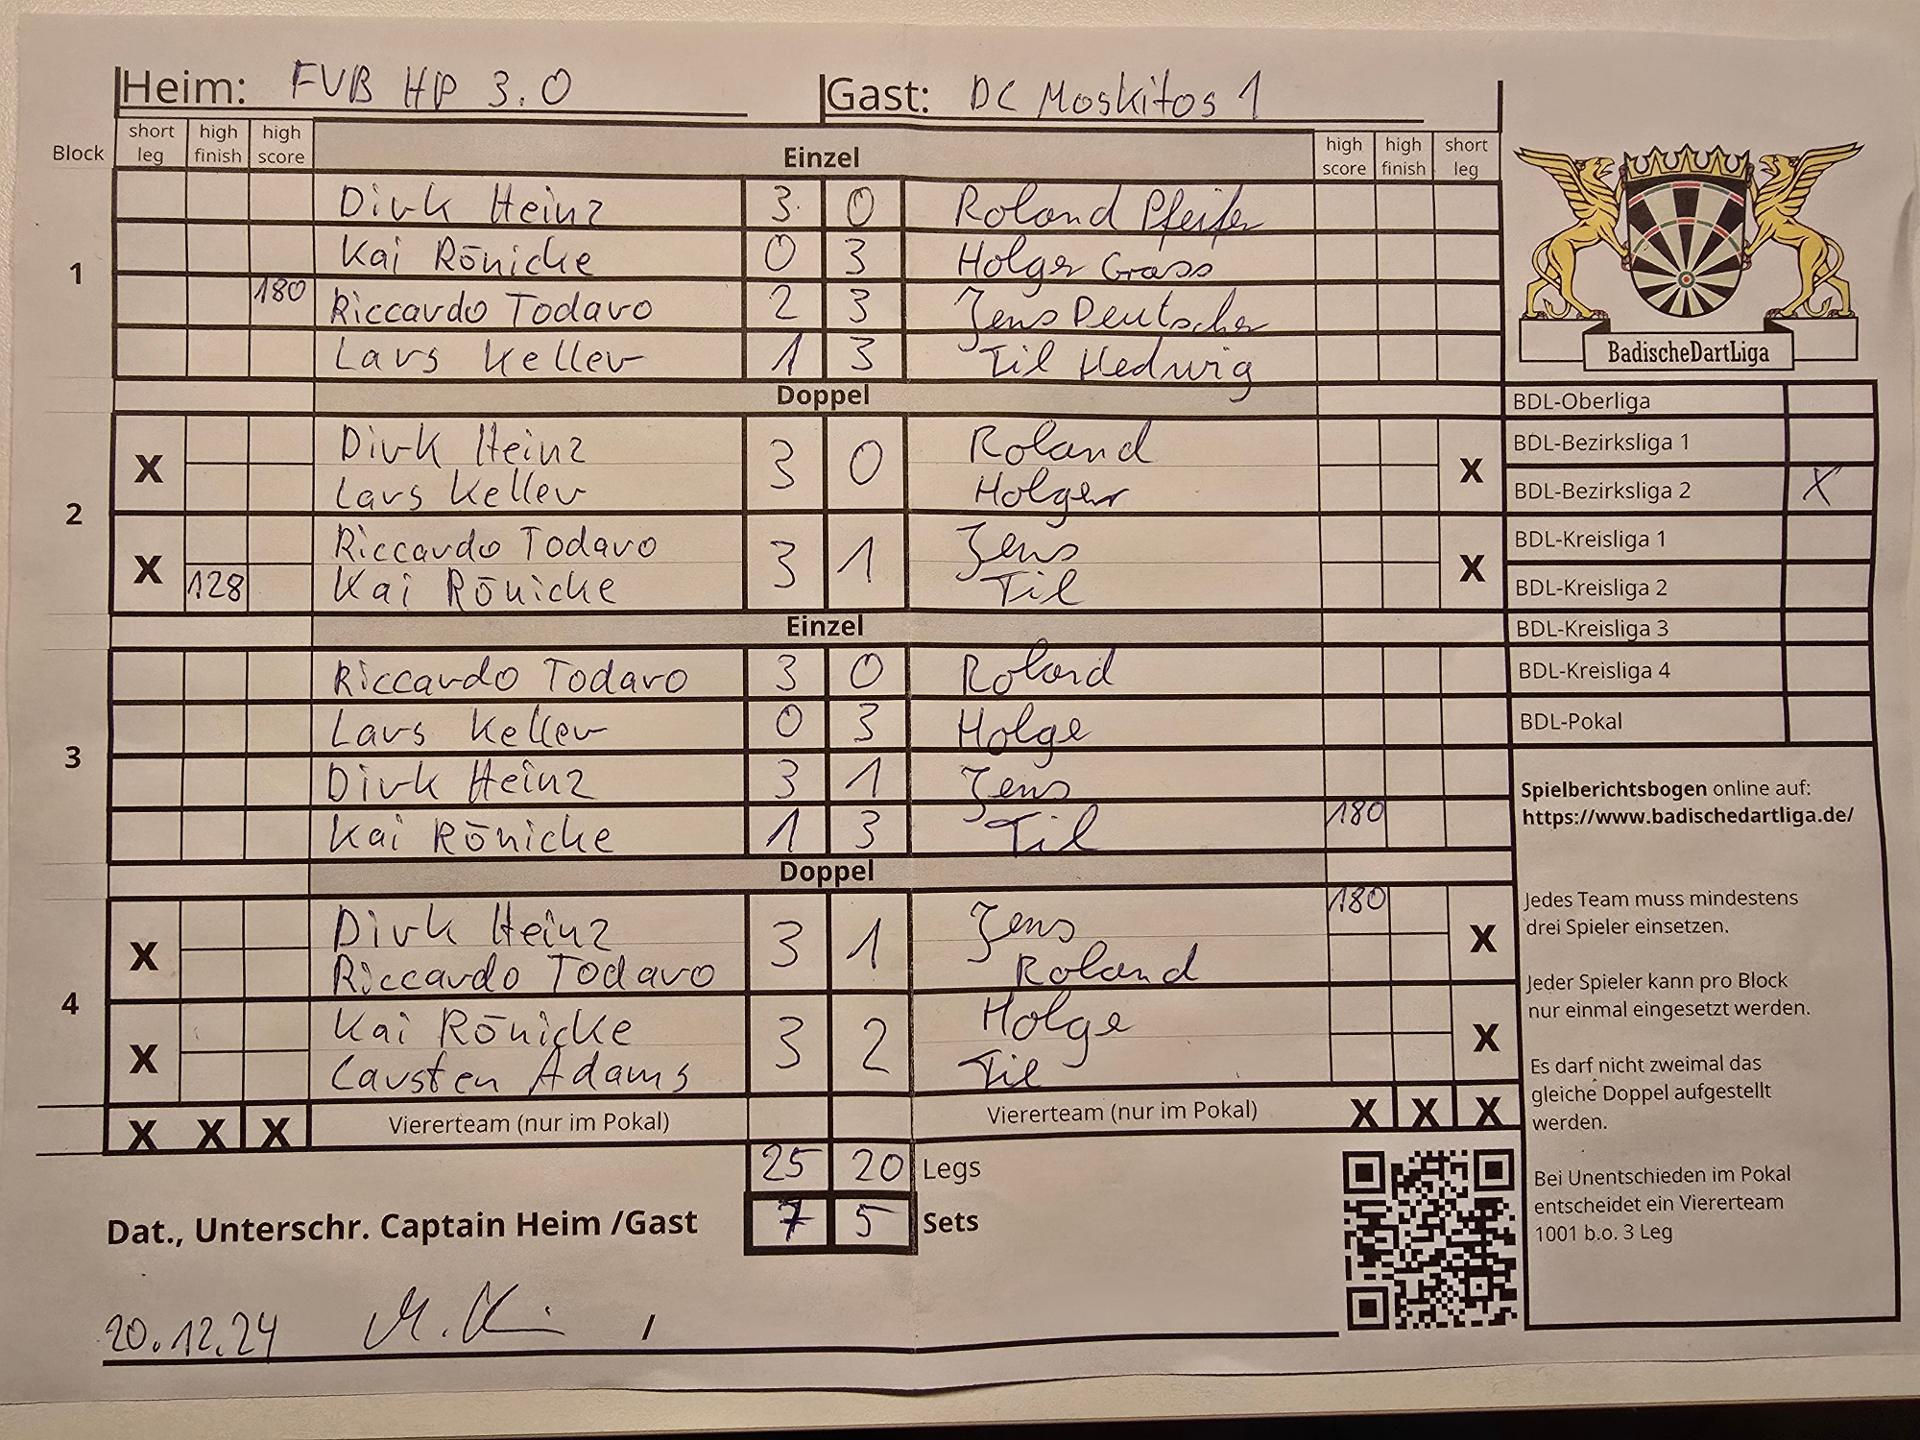 Heim: FVB HP 3.0 Gast: DC Moskitos 1
Block short leg high finish high score Einzel high score high finish short leg
Dirk Heinz 3 0 Roland Pfeifer
1 Kai Rönicke 0 3 Holger Grass
180 Riccardo Todaro 2 3 Jens Deutscher
Lars Keller 1 3 Til Hedwig
BadischeDartLiga
Doppel
X Dirk Heinz 3 0 Roland X
Lars Keller Holger
2
X Riccardo Todaro 3 1 Jens X
128 Kai Rönicke Til
Einzel
Riccardo Todaro 3 0 Roland
Lars Keller 0 3 Holge
3
Dirk Heinz 3 1 Jens
Kai Rönicke 1 3 Til 180
Doppel
X Dirk Heinz 3 1 Jens 180 X
Riccardo Todaro Roland
4
X Kai Rönicke 3 2 Holge X
Carsten Adams Til
X X X Viererteam (nur im Pokal) Viererteam (nur im Pokal) X X X
25 20 Legs
Dat., Unterschr. Captain Heim /Gast 7 5 Sets
20.12.24 /
BDL-Oberliga
BDL-Bezirksliga 1
BDL-Bezirksliga 2 X
BDL-Kreisliga 1
BDL-Kreisliga 2
BDL-Kreisliga 3
BDL-Kreisliga 4
BDL-Pokal
Spielberichtsbogen online auf:
https://www.badischedartliga.de/
Jedes Team muss mindestens
drei Spieler einsetzen.
Jeder Spieler kann pro Block
nur einmal eingesetzt werden.
Es darf nicht zweimal das
gleiche Doppel aufgestellt
werden.
Bei Unentschieden im Pokal
entscheidet ein Viererteam
1001 b.o. 3 Leg